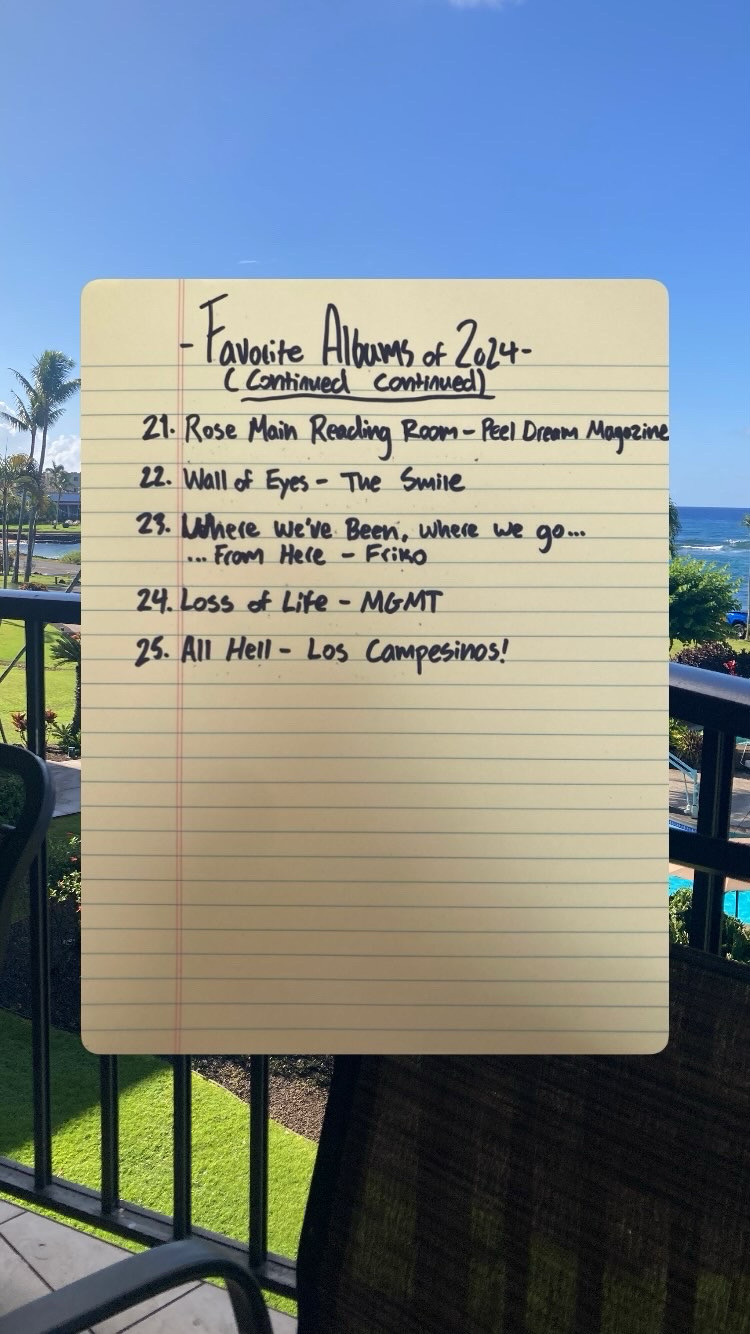 - Favorite Albums of 2024 -
(Continued continued)
21. Rose Main Reading Room - Peel Dream Magazine
22. Wall of Eyes - The Smile
23. Where we've Been, where we go...
... From Here - Friko
24. Loss of Life - MGMT
25. All Hell - Los Campesinos!